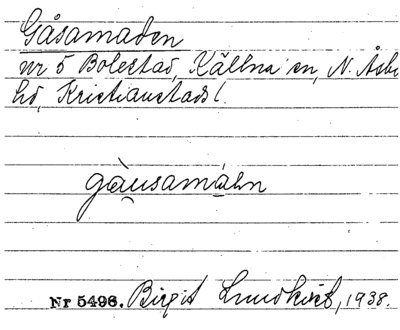 Gåsamaden
nr 5 Bolestad, Källna sn, N. Åsbo
hd, Kristianstads l.
gàusamáhn
Nr 5498. Birgit Lundkvist, 1938.